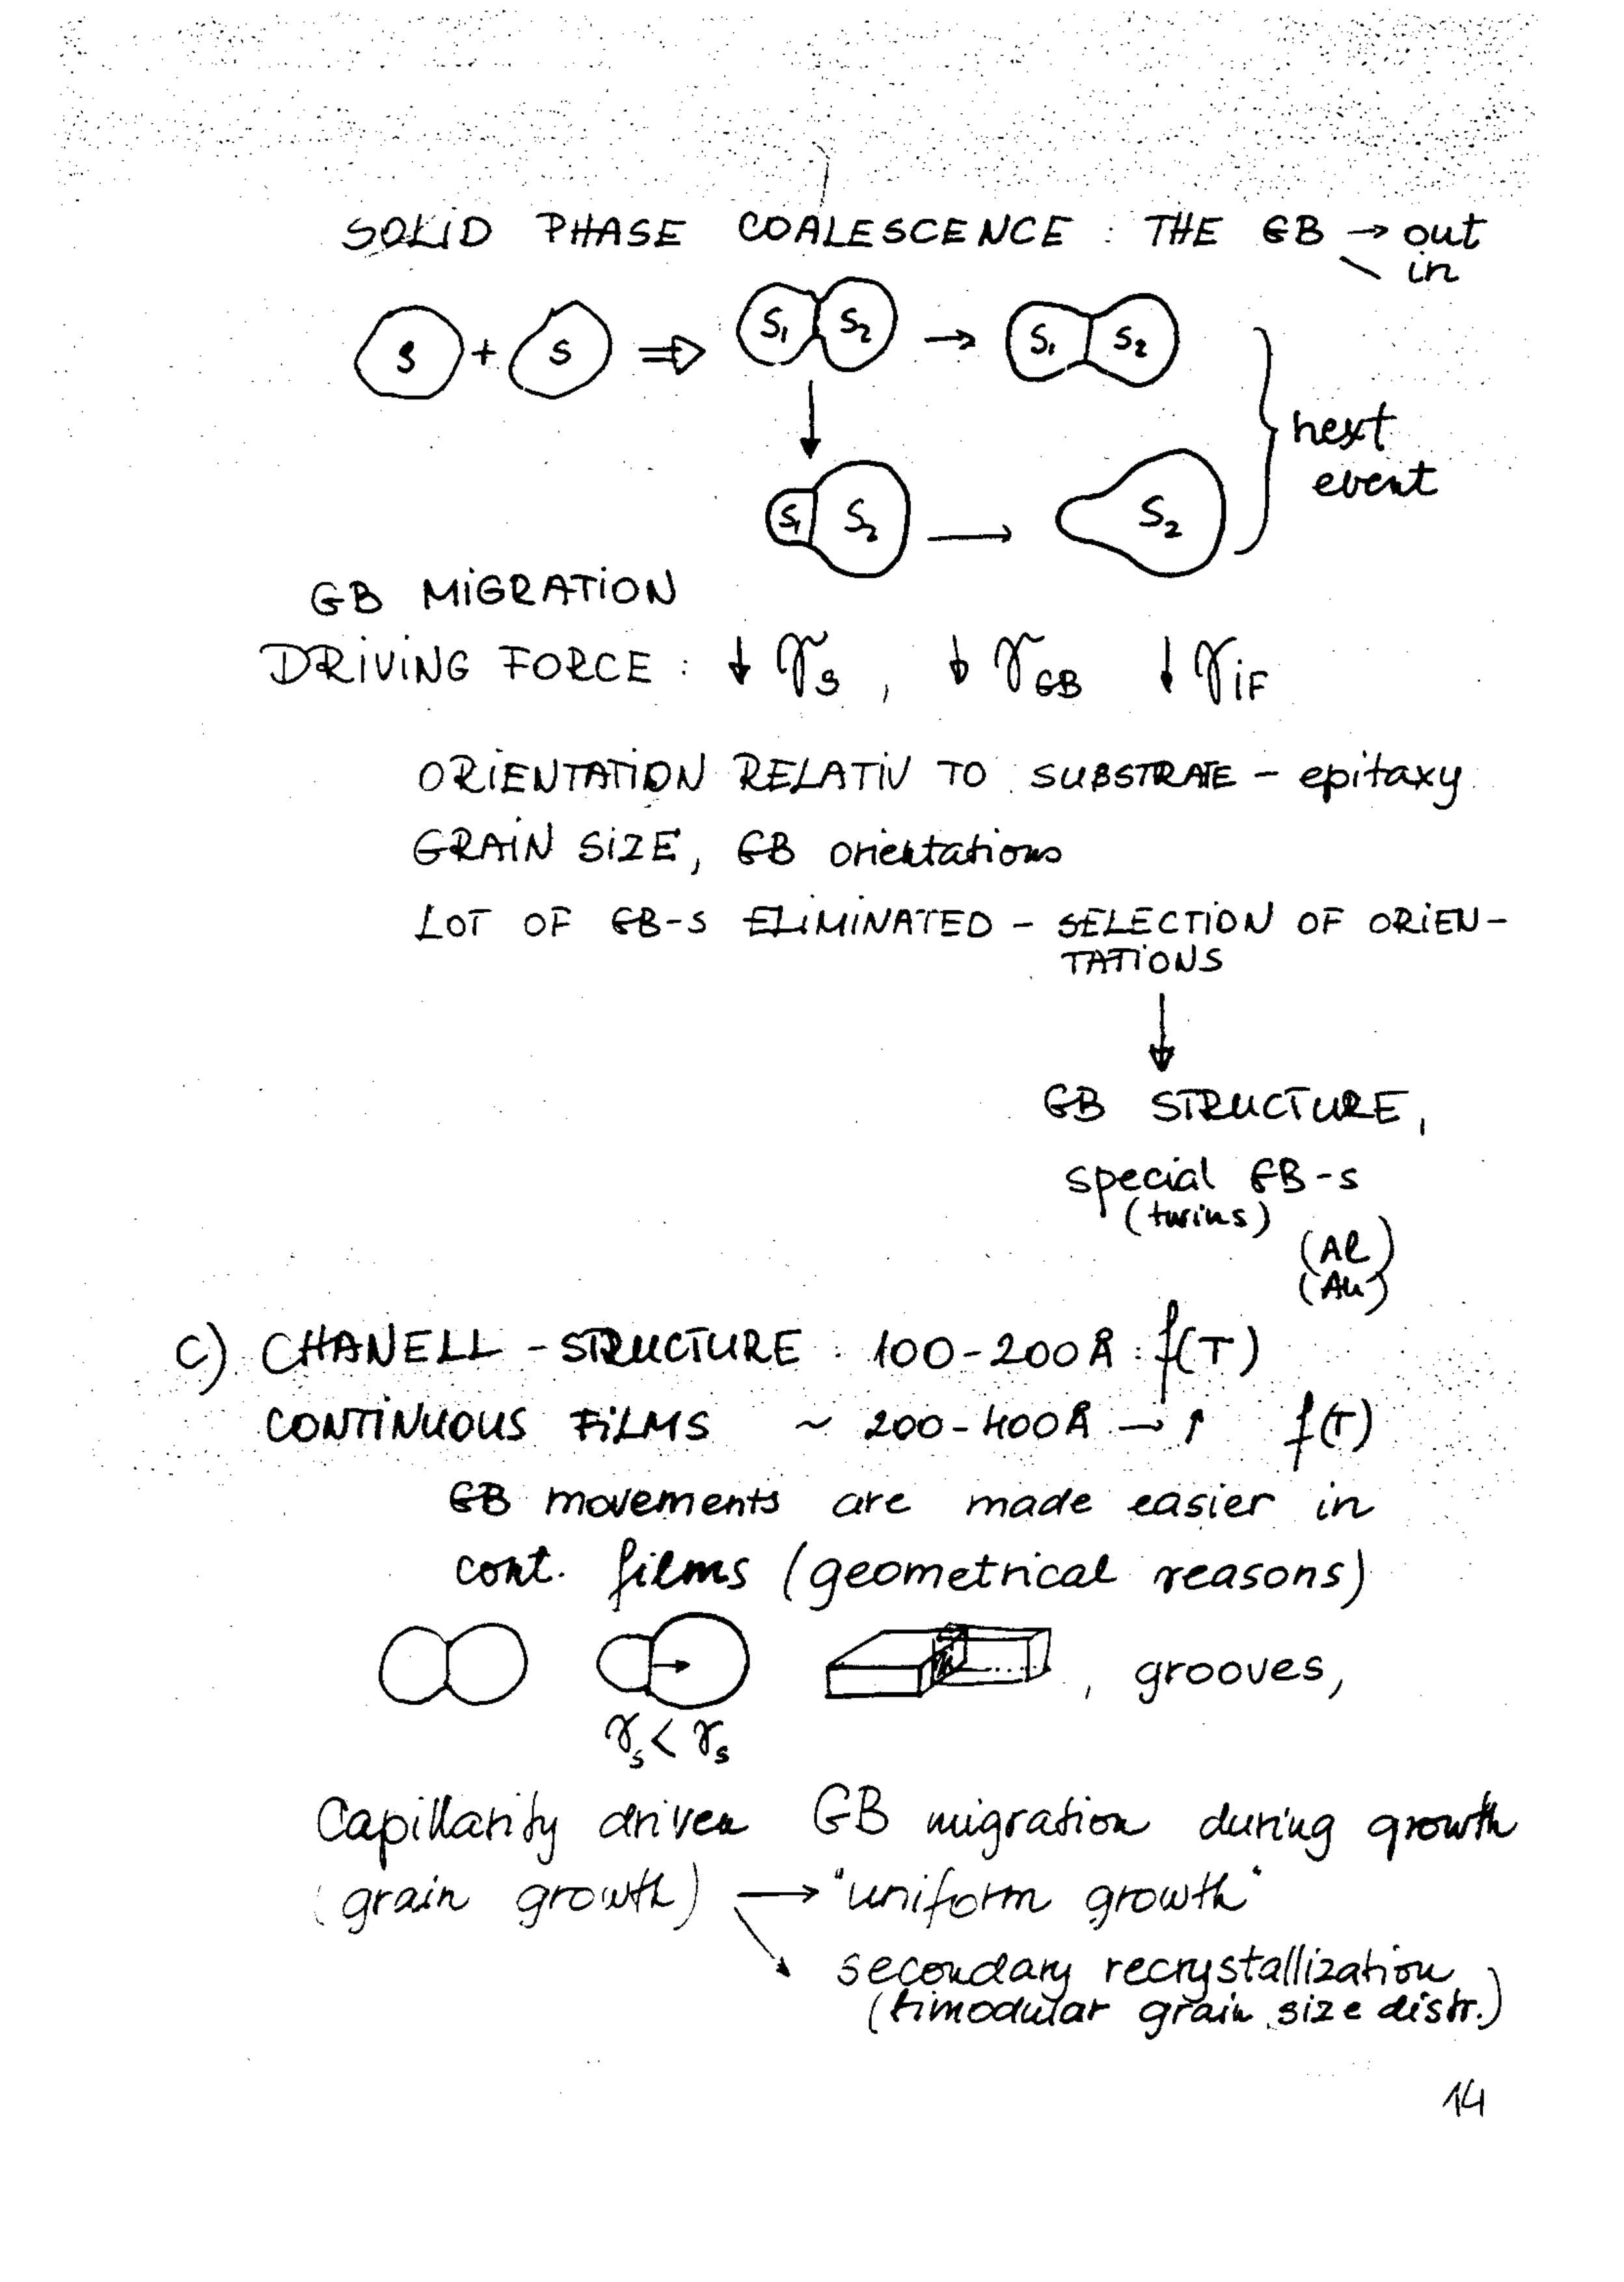 SOLID PHASE COALESCENCE : THE GB → out
in
S + S ⇒ S₁ S₂ → S₁ S₂
next
event
S₁ S₂ → S₂
GB MIGRATION
DRIVING FORCE : ↓ γ_S , ↓ γ_GB ↓ γ_iF
ORIENTATION RELATIV TO SUBSTRATE – epitaxy
GRAIN SIZE, GB orientations
LOT OF GB-S ELIMINATED – SELECTION OF ORIEN-
TATIONS
↓
GB STRUCTURE,
special GB-s
(twins)
(Al)
(Au)
C) CHANELL – STRUCTURE : 100-200Å : f(T)
CONTINUOUS FILMS ~ 200-400Å → ↑ f(T)
GB movements are made easier in
cont. films (geometrical reasons)
, grooves,
γ_s < γ_s
Capillarity driven GB migration during growth
(grain growth) → "uniform growth"
secondary recrystallization
(bimodular grain size distr.)
14